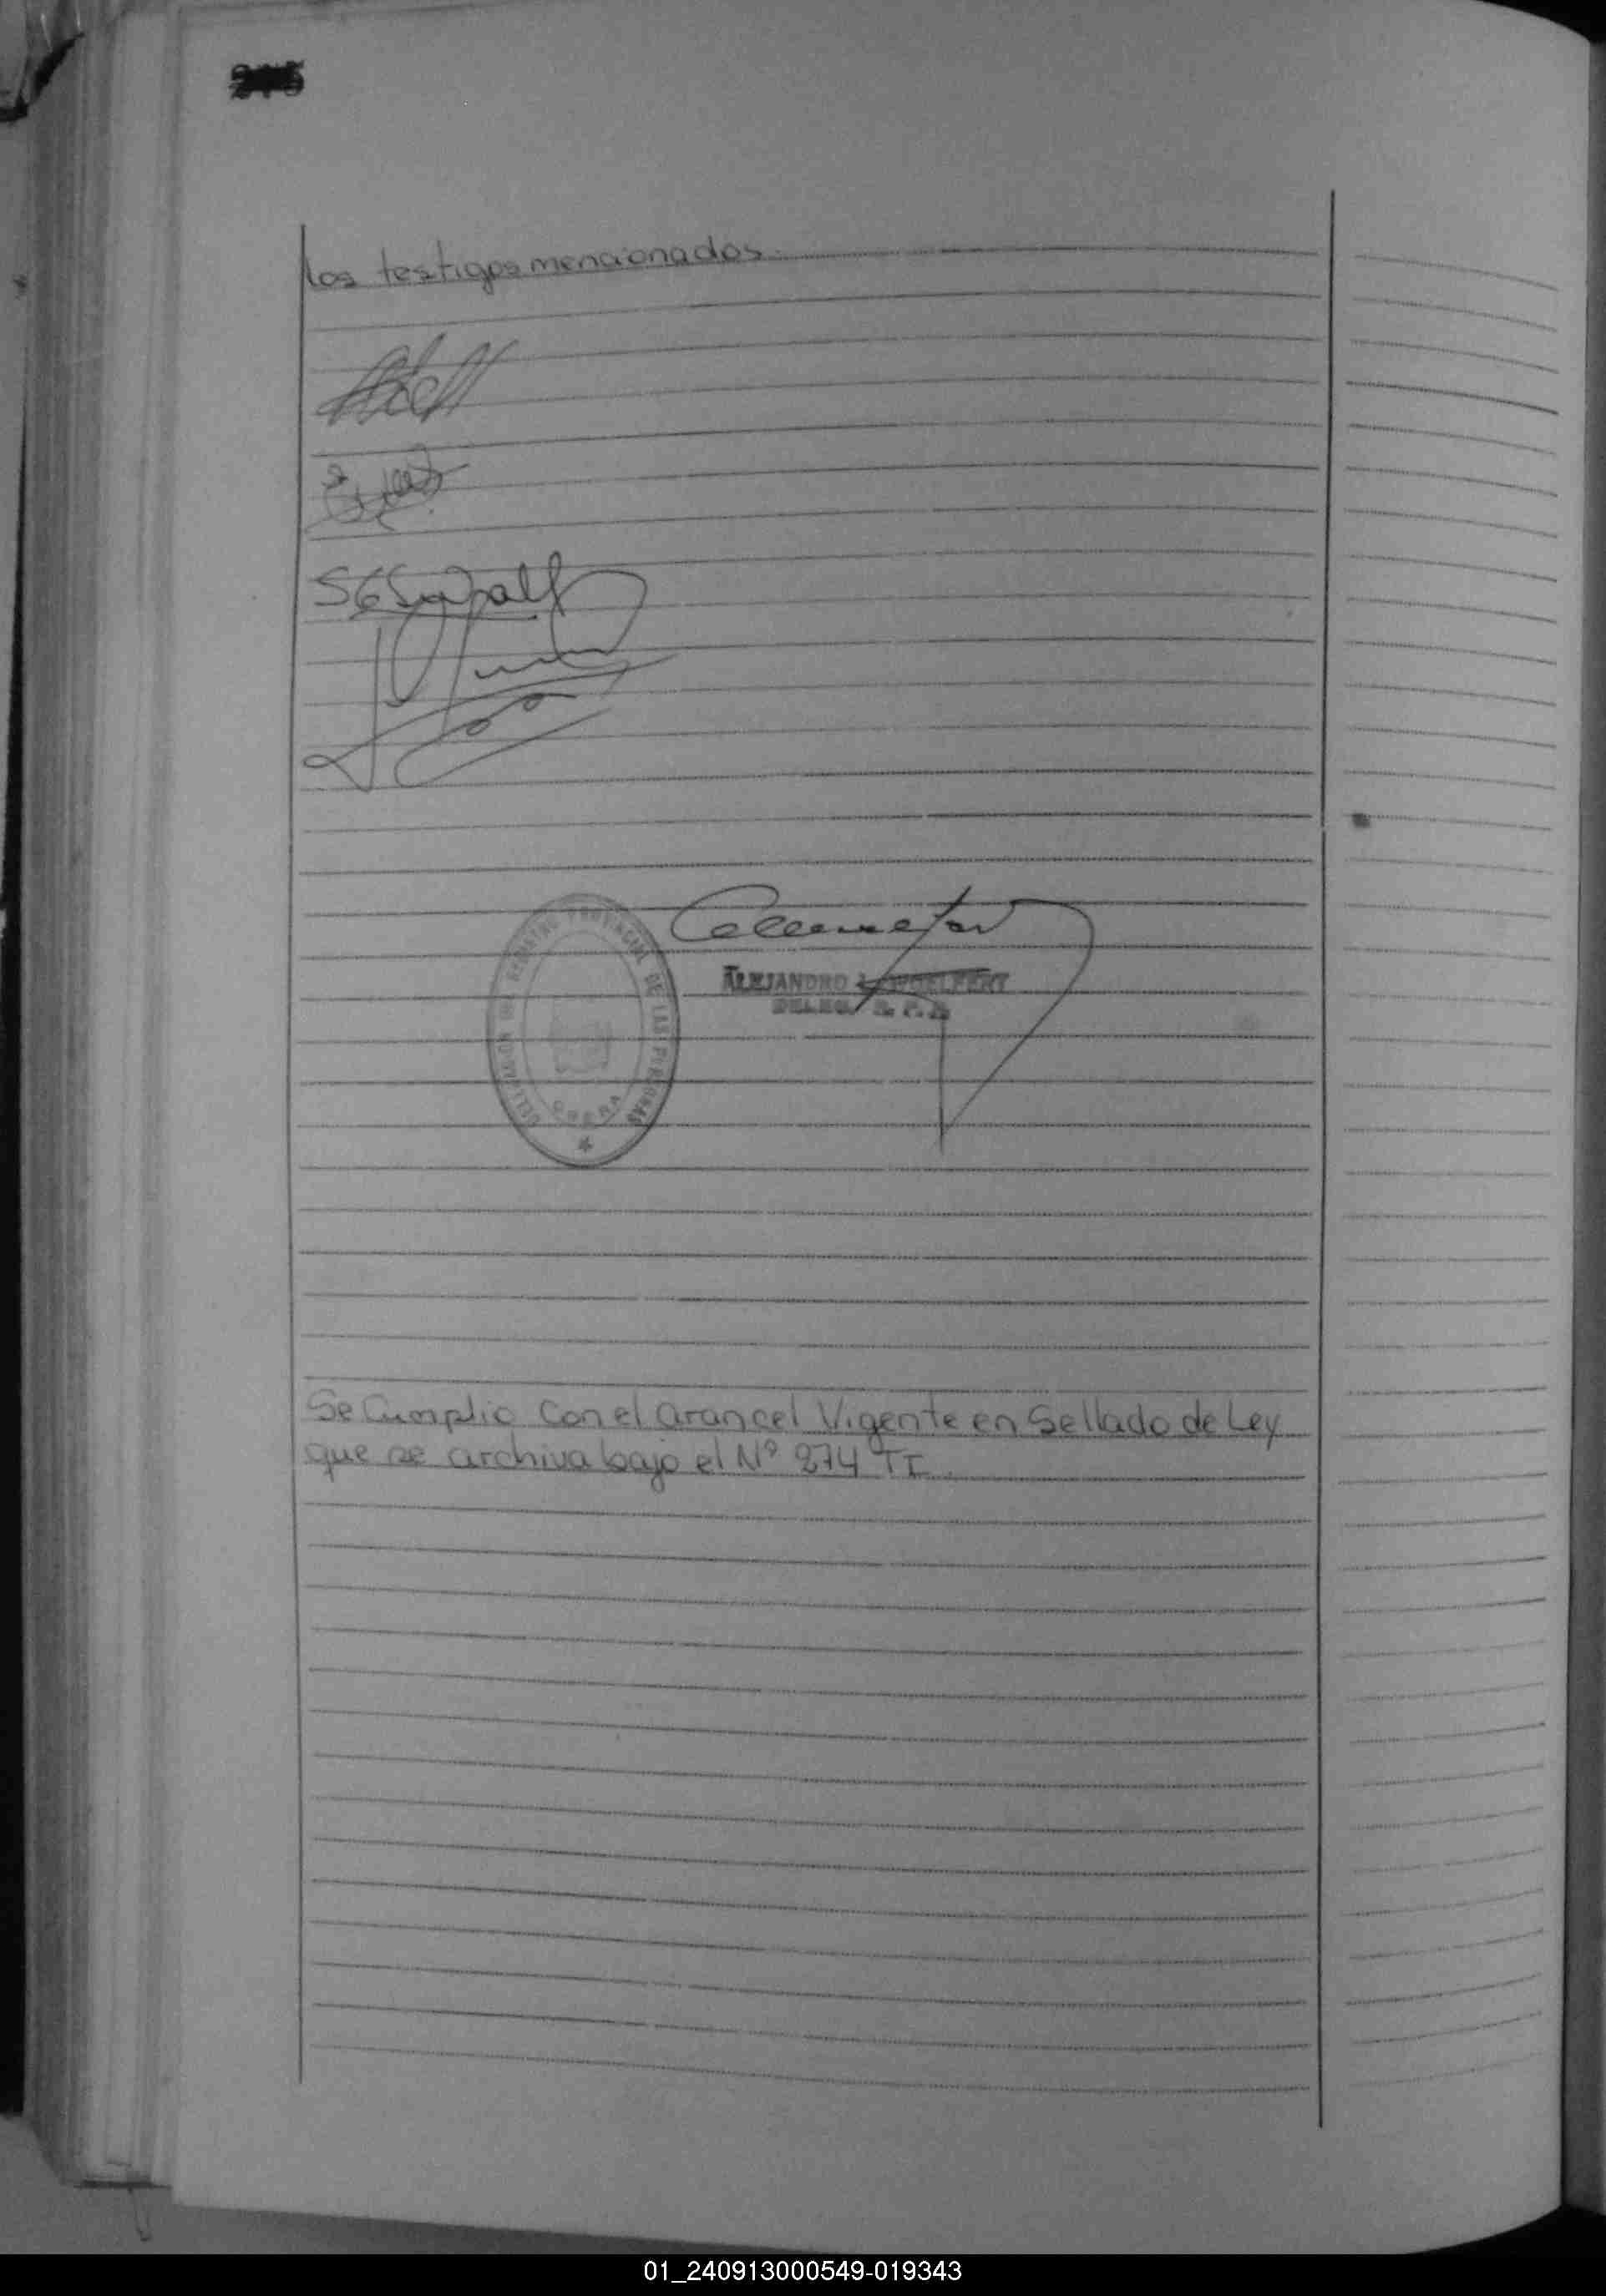 los testigos mencionados.
REGISTRO PROVINCIAL DE LAS PERSONAS
ALEJANDRO WOELFERT
DELEG. R. P. P.
Se Cumplio con el arancel Vigente en Sellado de Ley
que se archiva bajo el Nº 274 TI.
01_240913000549-019343